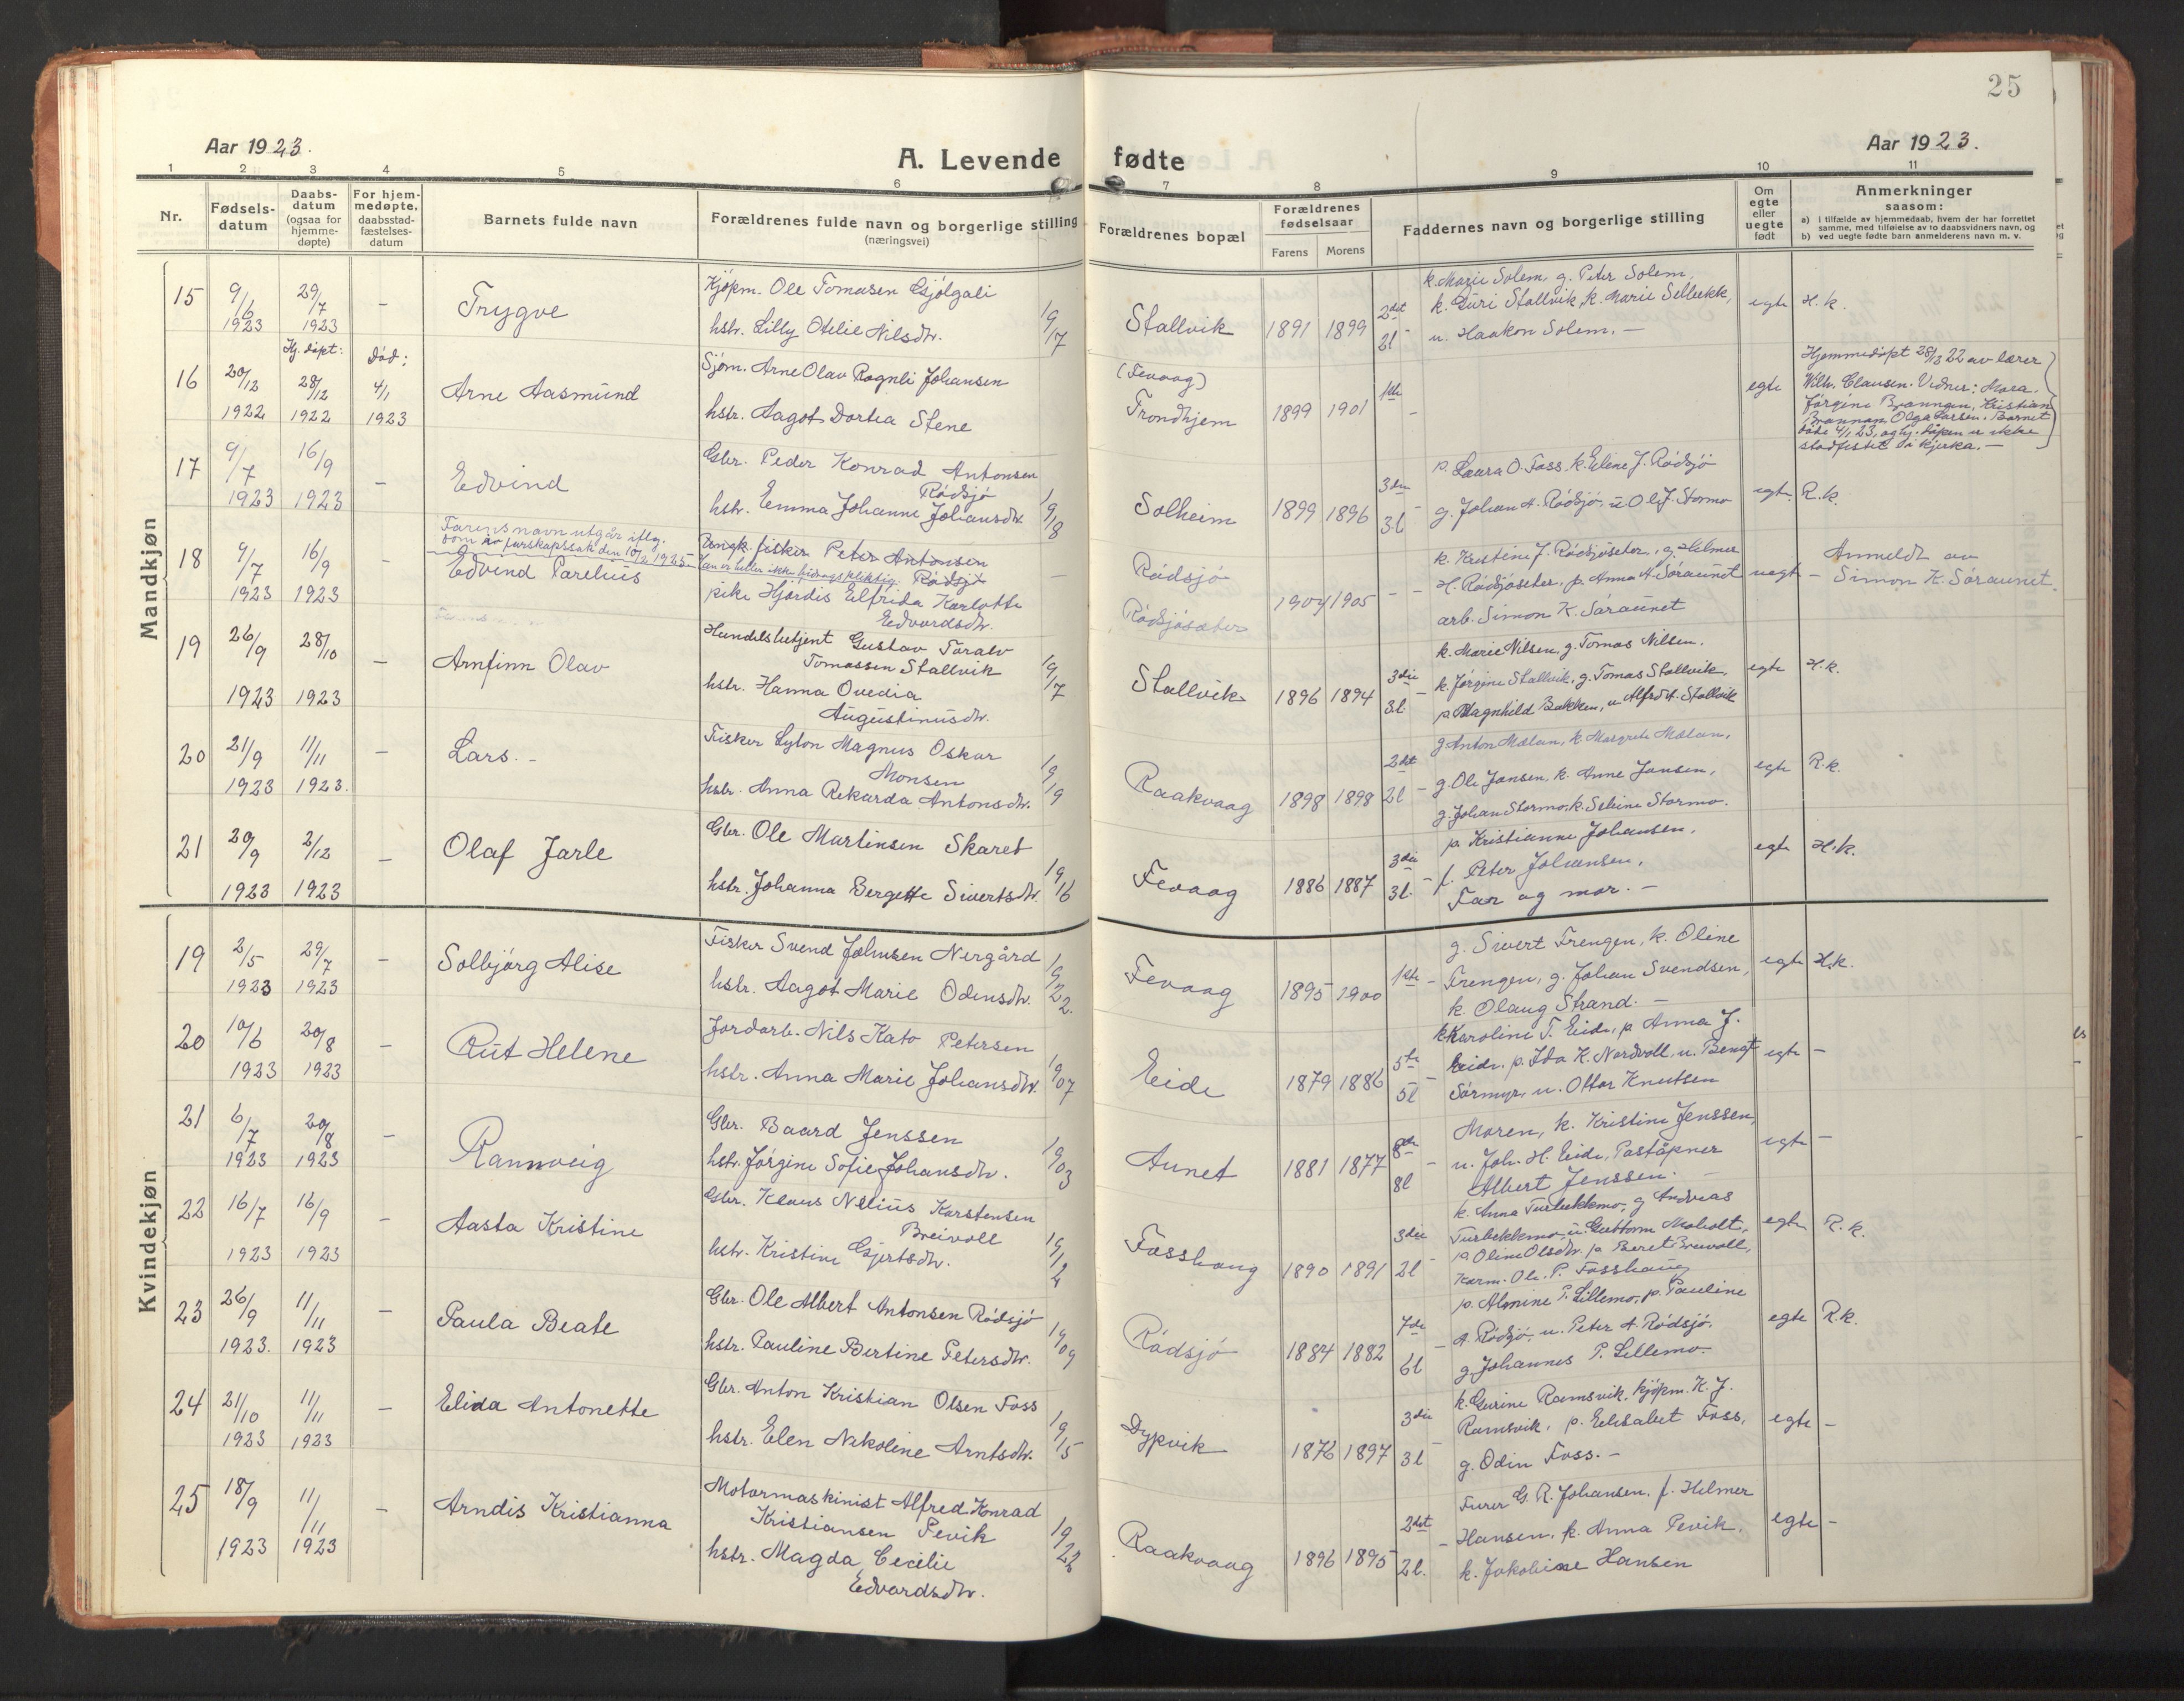 25
Aar 1923.
A. Levende fødte
Aar 1923.
1 2 3 4 5 6 7 8 9 10 11
Nr.
Fødsels-
datum
Daabs-
datum
(ogsaa for
hjemme-
døpte)
For hjem-
medøpte,
daabsstad-
fæstelses-
datum
Barnets fulde navn
Forældrenes fulde navn og borgerlige stilling
(næringsvei)
Forældrenes bopæl
Forældrenes
fødselsaar
Farens Morens
Faddernes navn og borgerlige stilling
Om
egte
eller
uegte
født
Anmerkninger
saasom:
a) i tilfælde av hjemmedaab, hvem der har forrettet
samme, med tilføielse av to daabsvidners navn, og
b) ved uegte fødte barn anmelderens navn m. v.
Mandkjøn
15 9/6 1923 29/7 1923 –
Trygve
Kjøpm. Ole Tomasen Gjølgali
hstr. Lilly Otelie Nilsdtr. 19/17
Stallvik 1891 1899 2det 2l –
k. Marie Solem, g. Peter Solem,
k. Guri Stallvik, k. Marie Selbekk,
u. Haakon Solem. –
egte H.k.
16 20/12 1922 Hj. døpt: 28/12 1922 Død: 4/1 1923
Arne Aasmund
Sjøm. Arne Olav Rognli Johansen
hstr. Aagot Dortea Stene
(Fevaag)
Trondhjem 1899 1901 1ste –
egte
Hjemmedøpt 28/12 22 av lærer
Wilh. Clausen. Vidner: Mora.
Jørgine Brannan, Kristian
Brannan, Olga Larsen. Barnet
døde 4/1 23, og hj. dåpen er ikke
stadfestet i kjerka. –
17 9/7 1923 16/9 1923 –
Edvind
Gbr. Peder Konrad Antonsen
Rødsjø
hstr. Emma Johanne Johansdtr. 19/18
Solheim 1899 1896 3die 3l –
p. Laura O. Foss, k. Eline J. Rødsjø
g. Johan A. Rødsjø, u. Ole J. Stormo
egte R.k.
18 9/7 1923 16/9 1923 –
Farens navn utgår iflg.
dom av farskapssak den 10/2 1925
Edvind Parelius
Ungk. fisker Peter Antonsen
Han er heller ikke bidragspliktig. Rødsjø
pike Hjørdis Elfrida Karlotte
Edvardsdtr. –
Rødsjø
Rødsjøsæter 1904 1905 – –
k. Kristine J. Rødsjøseter, g. Helmer
H. Rødsjøseter, p. Anna A. Søraunet
arb. Simon K. Søraunet
uegte – Anmeldt av
Simon K. Søraunet.
19 26/9 1923 28/10 1923 –
Arnfinn Olav
Handelsbetjent Gustav Toralv
Tomassen Stallvik
hstr. Hanna Ovedia
Augustinusdtr. 19/17
Stallvik 1896 1894 3die 3l –
k. Marie Nilsen, g. Tomas Nilsen.
k. Jørgine Stallvik, g. Tomas Stallvik,
p. Magnhild Bakken, u. Alfred A. Stallvik
egte H.k.
20 21/9 1923 11/11 1923. –
Lars. –
Fisker Lylon Magnus Oskar
Monsen
hstr. Anna Rikarda Antonsdtr. 19/19
Raakvaag 1898 1898 2det 2l –
g. Anton Mælan, k. Margrete Mælan,
g. Ole Jansen, k. Anne Jansen,
g. Johan Stormo, k. Seline Stormo.
egte R.k.
21 20/9 1923 2/12 1923 –
Olaf Jarle
Gbr. Ole Martinsen Skaret
hstr. Johanna Bergette Sivertsdtr. 19/16
Fevaag 1886 1887 3die 3l. –
p. Kristianne Johansen,
f. Peter Johansen,
Far og mor. –
egte H.k.
Kvindekjøn
19 2/5 1923 29/7 1923 –
Solbjørg Alise
Fisker Svend Johnsen Nergård
hstr. Aagot Marie Odinsdtr. 19/22.
Fevaag 1895 1900 1ste –
g. Sivert Frengen, k. Oline
Frengen, g. Johan Svendsen,
k. Olaug Strand. –
egte H.k.
20 10/6 1923 20/8 1923 –
Rut Helene
Jordarb. Nils Kato Petersen
hstr. Anna Marie Johansdtr. 19/07
Eide 1879 1886 5te 5l –
k. Karoline T. Eide, p. Anna J.
Eide, p. Ida K. Nordvoll, u. Bengt
Sørmyr, u. Ottar Knutsen
egte –
21 6/7 1923 20/8 1923 –
Rannveig
Gbr. Baard Jenssen
hstr. Jørgine Sofie Johansdtr. 19/03
Aunet 1881 1877 8de 8l –
Moren, k. Kristine Jenssen,
u. Joh. H. Eide, Poståpner
Albert Jenssen. –
egte –
22 16/7 1923 16/9 1923 –
Aasta Kristine
Gbr. Klaus Nelius Karstensen
Breivoll
hstr. Kristine Gjertsdtr. 19/12
Fosshaug 1890 1891 3die 2l –
k. Anna Turbekkmo, g. Andreas
Turbekkmo, u. Guttorm Moholt,
p. Oline Olsdtr. p. Beret Breivoll,
Karm. Ole P. Fosshaug
egte R.k.
23 26/9 1923. 11/11 1923 –
Paula Beate
Gbr. Ole Albert Antonsen Rødsjø
hstr. Pauline Bertine Petersdtr. 19/09
Rødsjø 1884 1882 7de 6l –
p. Almine P. Lillemo, p. Pauline
A. Rødsjø, u. Peter A. Rødsjø,
g. Johannes P. Lillemo.
egte R.k.
24 21/10 1923 11/11 1923 –
Elida Antonette
Gbr. Anton Kristian Olsen Foss
hstr. Elen Nikoline Arntsdtr. 19/15
Dypvik 1876 1897 3die 3l –
k. Gurine Ramsvik, kjøpm. K. J.
Ramsvik, p. Elisabet Foss,
g. Odin Foss. –
egte –
25 18/9 1923 11/11 1923 –
Arndis Kristianna
Motormaskinist Alfred Konrad
Kristiansen Pevik
hstr. Magda Cecilie
Edvardsdtr. 19/22
Raakvaag 1896 1895 2det 2l. –
Furer G. R. Johansen, f. Helmer
Hansen, k. Anna Pevik,
k. Jakobine Hansen
egte –